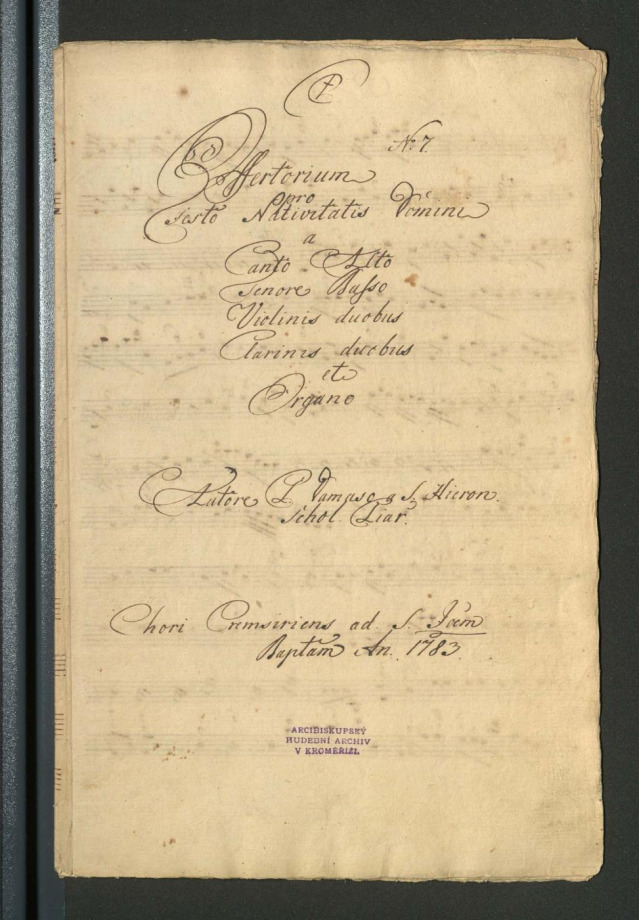 No 7.
Offertorium
pro
Festo Nativitatis Domini
a
Canto Alto
Tenore Basso
Violinis duobus
Clarinis duobus
et
Organo
Autore P. a S. Hieron.
Schol. Piar.
Chori Cremsiriens ad S. Joẽm
Baptam An. 1783.
ARCIBISKUPSKÝ
HUDEBNÍ ARCHIV
V KROMĚŘÍŽI.